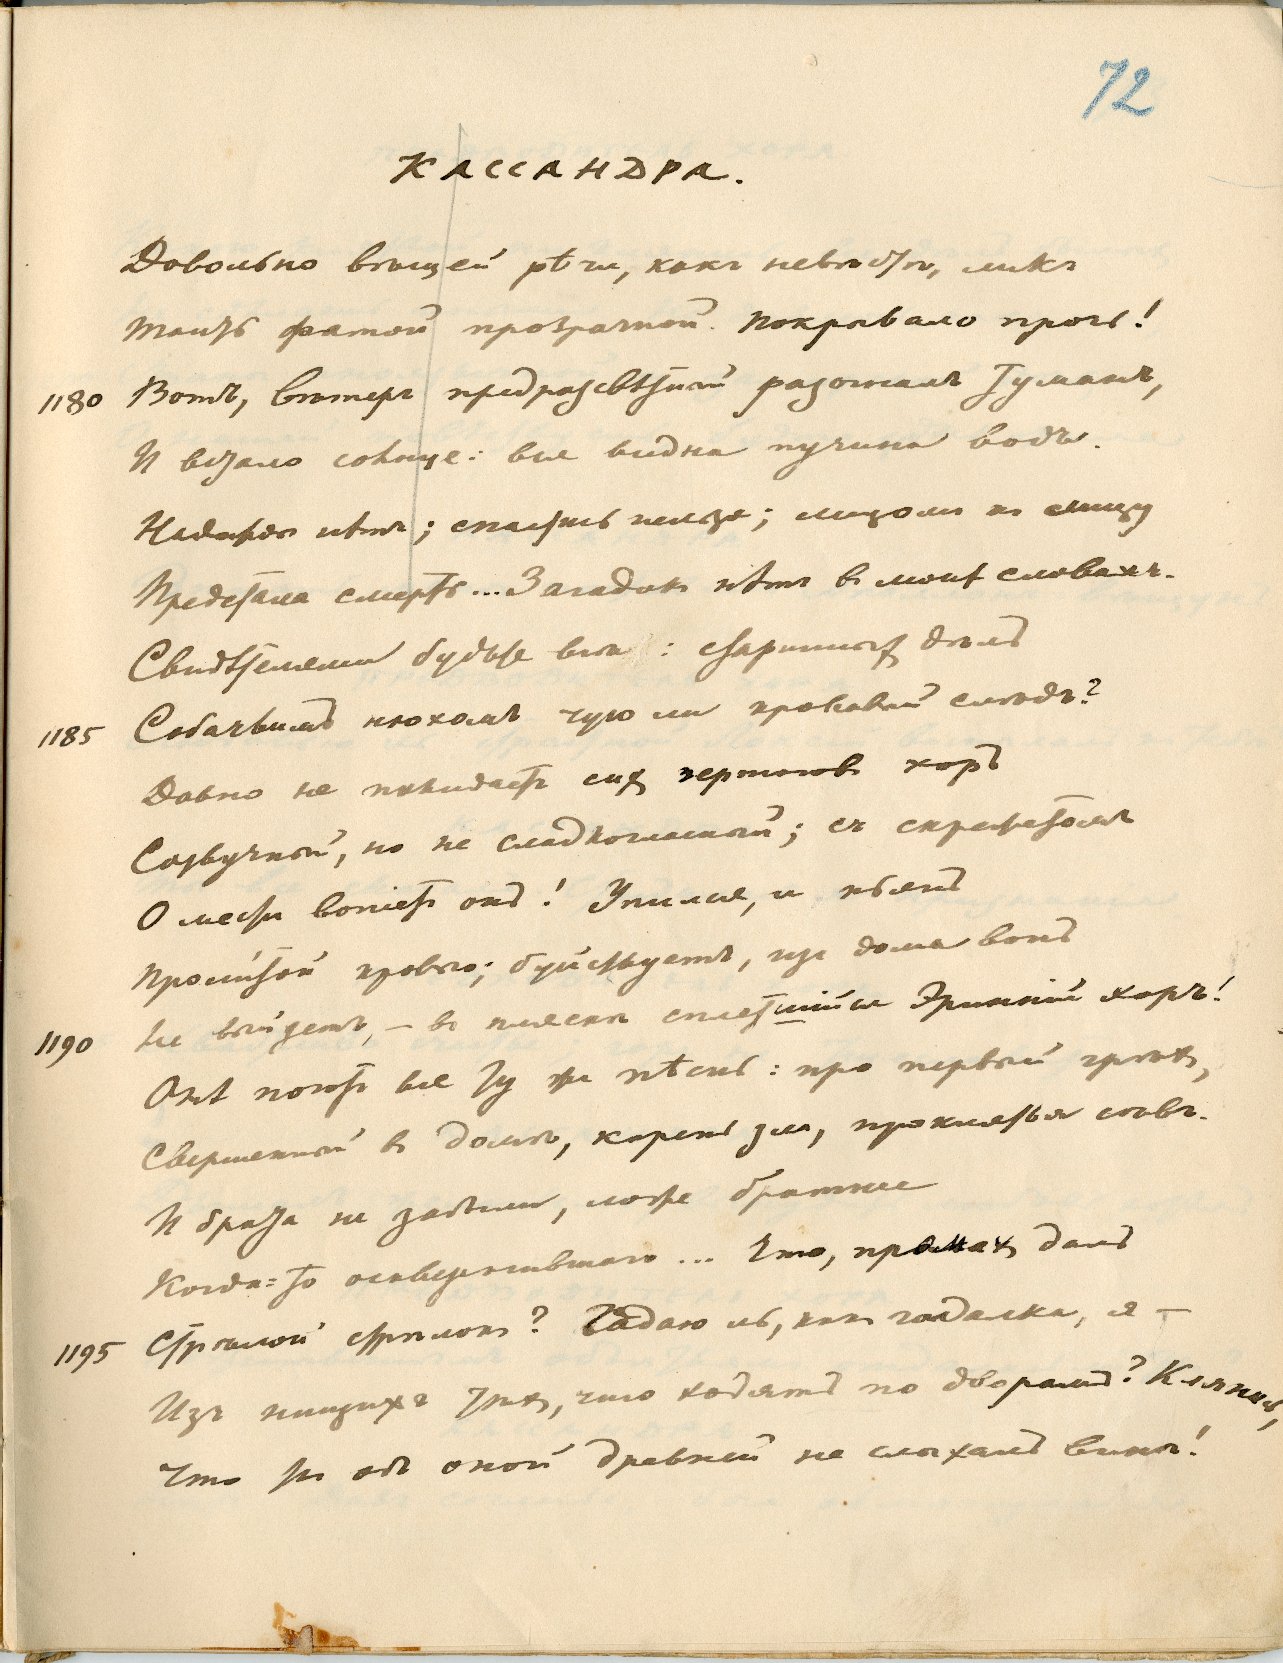 72
КАССАНДРА.
Довольно вѣщей рѣчи, какъ невѣста, ликъ
Таить фатой прозрачной. Покрывало прочь!
1180 Вотъ, вѣтеръ предразсвѣтный разогналъ туманъ,
И встало солнце: вся видна пучина водъ.
Надежды нѣтъ; спастись нельзя; лицомъ къ лицу
Предстала смерть... Загадокъ нѣтъ въ моихъ словахъ.
Свидѣтелями будьте вы : старинныхъ дѣлъ
1185 Собачьимъ нюхомъ чую ли кровавый слѣдъ?
Давно не покидаетъ сихъ чертоговъ хоръ
Созвучный, но не сладкогласный; съ скрежетомъ
О мести вопіетъ онъ! Упился, и пьянъ
Пролитой кровью; буйствуетъ, изъ дома вонъ
1190 Не выйдетъ, – въ пляски сплетшійся Эринній хоръ!
Онѣ поютъ все ту же пѣснь: про первый грѣхъ,
Свершенный въ домѣ, корень зла, проклятья сѣвъ.
И брата не забыли, ложе братнее
Когда=то осквернившаго ... Что, промахъ далъ
1195 Стрѣлой стрѣлокъ? Гадаю ль, какъ гадалка, я –
Изъ нищихъ тѣхъ, что ходятъ по дворамъ? Клянись,
Что ты объ оной древней не слыхалъ винѣ!